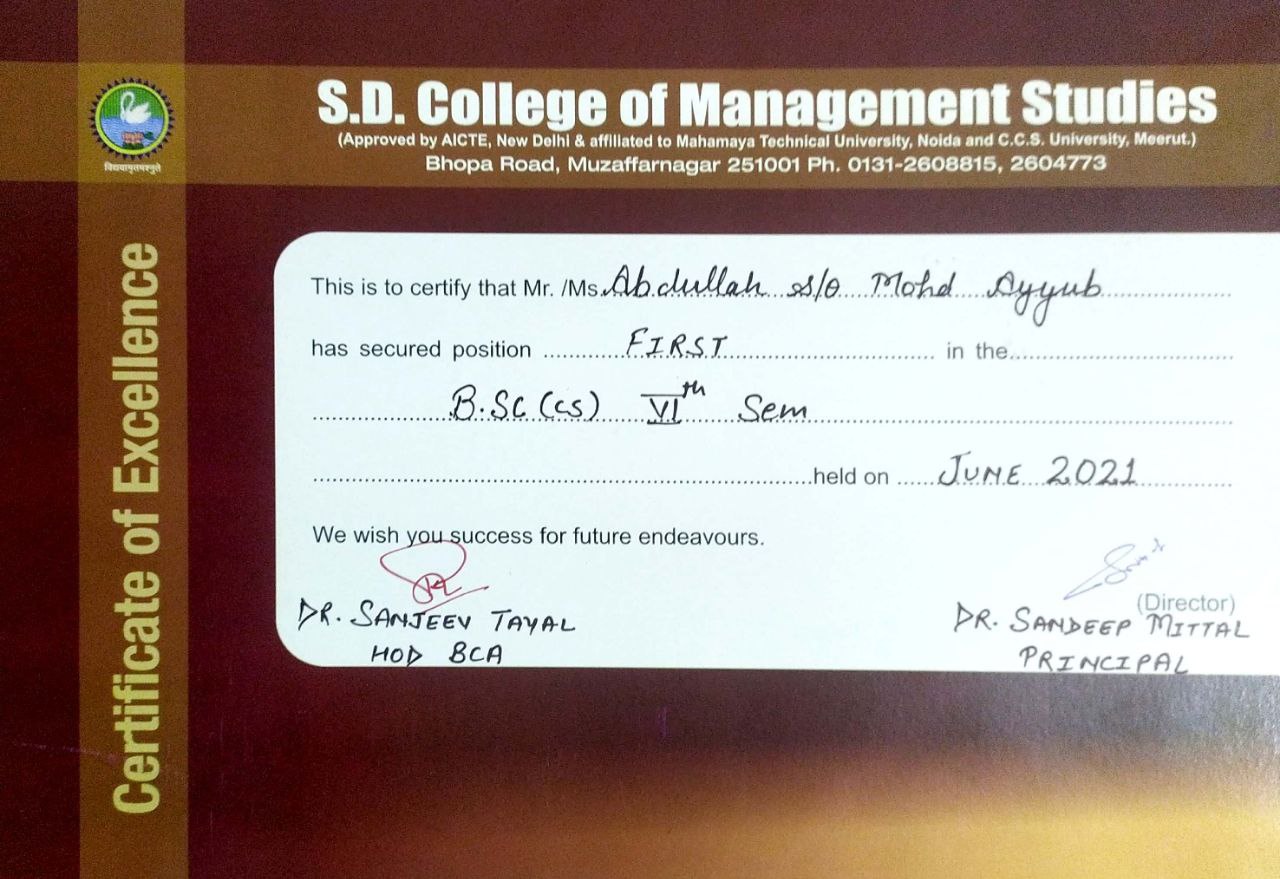 S.D. College of Management Studies
(Approved by AICTE, New Delhi & affillated to Mahamaya Technical University, Noida and C.C.S. University, Meerut.)
Bhopa Road, Muzaffarnagar 251001 Ph. 0131-2608815, 2604773
विद्ययामृतमश्नुते
Certificate of Excellence
This is to certify that Mr. /Ms. Abdullah s/o Mohd Ayyub
has secured position FIRST in the
B.Sc (cs) VIth Sem
held on JUNE 2021
We wish you success for future endeavours.
(Director)
DR. SANJEEV TAYAL DR. SANDEEP MITTAL
HOD BCA PRINCIPAL